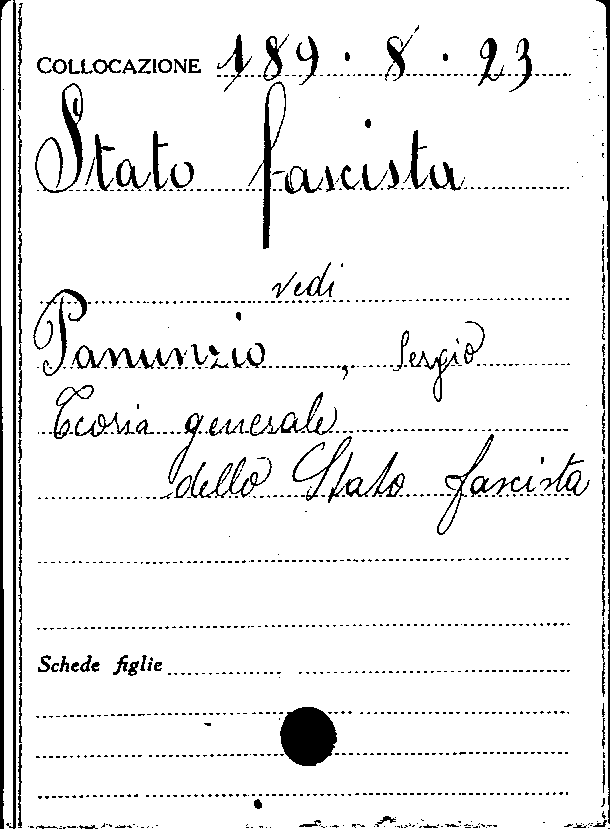 COLLOCAZIONE 189 · 8 · 23
Stato fascista
vedi
Panunzio, Sergio
Teoria generale
dello Stato fascista
Schede figlie